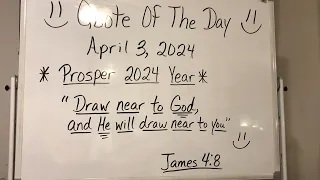 Quote Of The Day
April 3, 2024
* Prosper 2024 Year *
"Draw near to God,
and He will draw near to you"
James 4:8